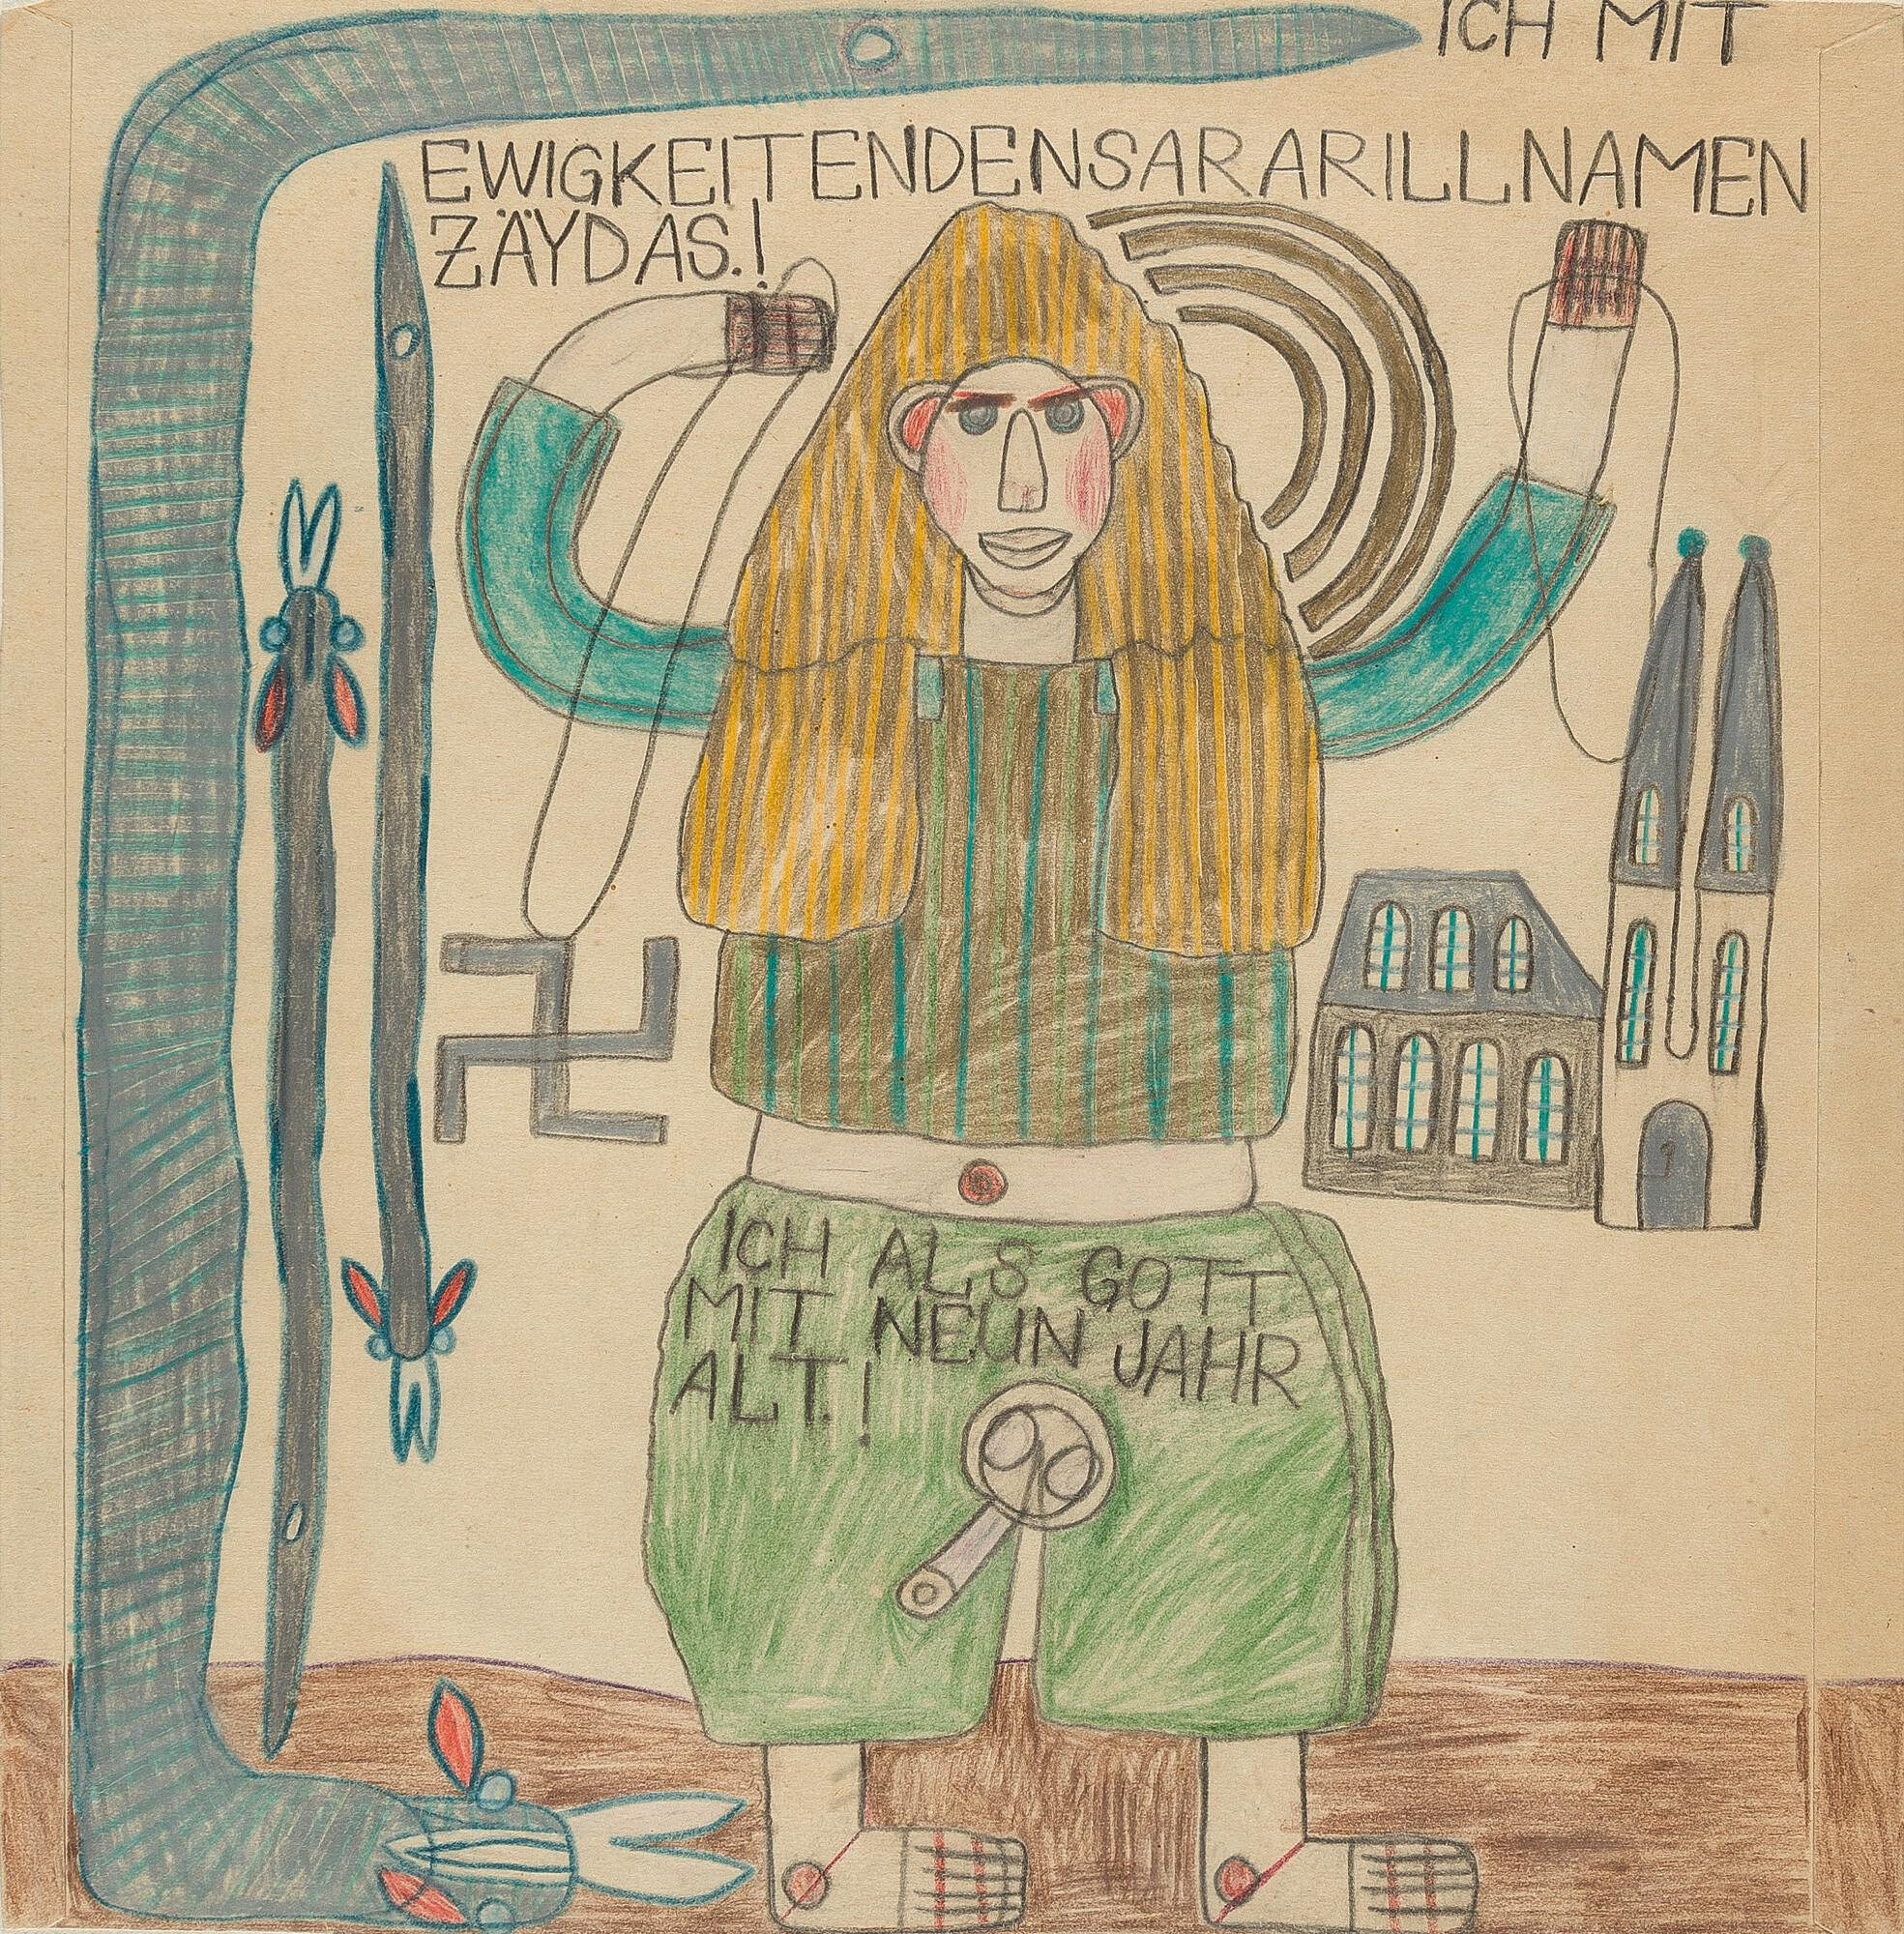 ICH MIT
EWIGKEITENDENSARARILLNAMEN
ZÄYDAS.!
ICH ALS GOTT
MIT NEUN JAHR
ALT.!